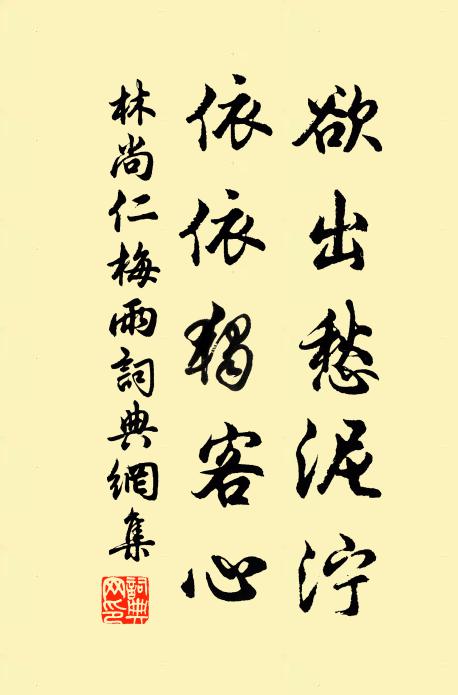 欲出愁泥泞
依依独客心
林尚仁梅雨詞典網集
詞典網印